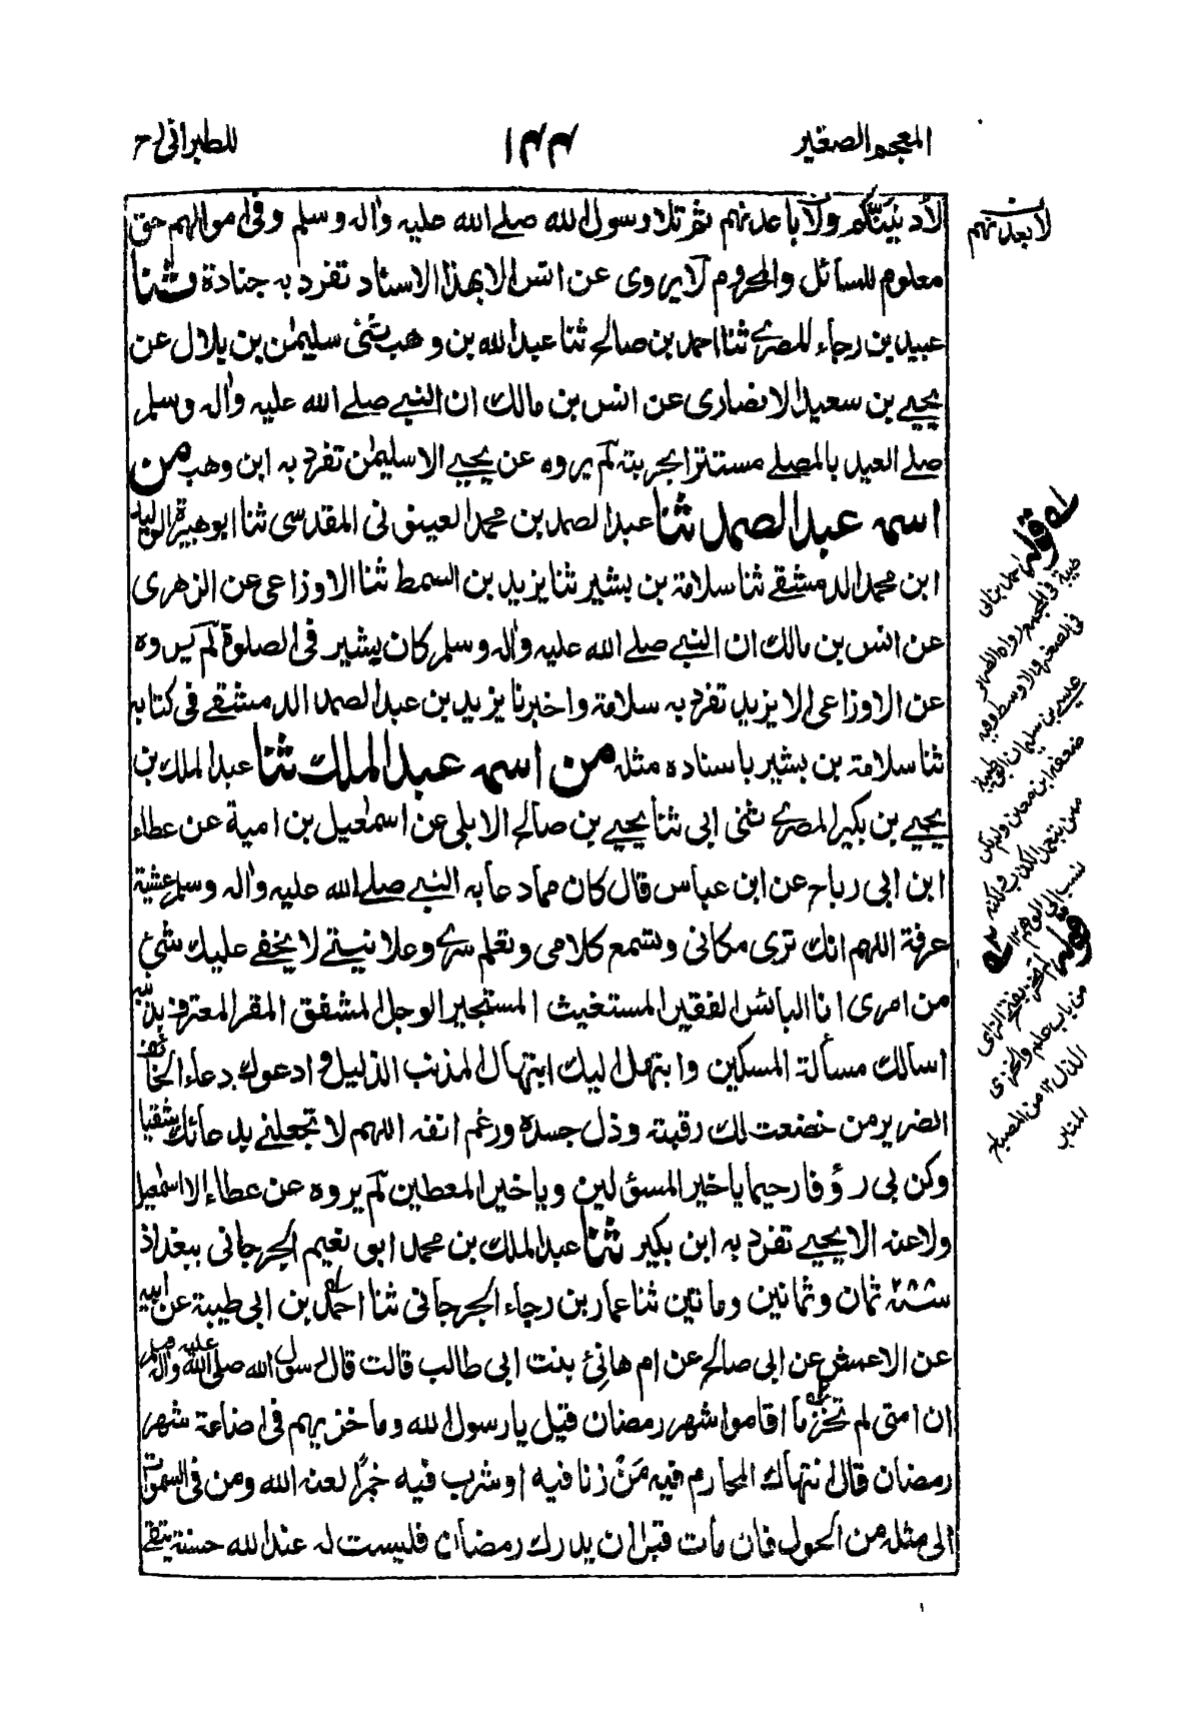 المعجم الصغير
١٤٤
للطبراني ح
لأدنينكم ولأباعدنهم ثم تلا رسول الله صلے الله عليه واٰله وسلم وفى اموالهم حق
معلوم للسائل والمحروم لا يروى عن انس الا بهذا الاسناد تفرد به جنادة ثنا
عبيد بن رجاء المصرے ثنا احمد بن صالح ثنا عبد الله بن وهب ثنى سليمٰن بن بلال عن
يحيے بن سعيد الانصارى عن انس بن مالك ان النبے صلے الله عليه واٰله وسلم
صلے العيد بالمصلے مستترا بحربته لم يروه عن يحيے الا سليمٰن تفرد به ابن وهب من
اسمه عبد الصمد ثنا عبد الصمد بن محمد العينونى المقدسى ثنا ابو هبيرة الوليد
ابن محمد الدمشقے ثنا سلامة بن بشير ثنا يزيد بن السمط ثنا الاوزاعى عن الزهرى
عن انس بن مالك ان النبے صلے الله عليه واٰله وسلم كان يشير فى الصلوة لم يروه
عن الاوزاعى الا يزيد تفرد به سلامة واخبرنا يزيد بن عبد الصمد الدمشقے فى كتابه
ثنا سلامة بن بشير باسناده مثله من اسمه عبد الملك ثنا عبد الملك بن
يحيے بن بكير المصرے ثنى ابى ثنا يحيے بن صالح الايلى عن اسمٰعيل بن امية عن عطاء
ابن ابى رباح عن ابن عباس قال كان مماد عا به النبے صلے الله عليه واٰله وسلم عشية
عرفة اللهم انك ترى مكانى وتسمع كلامى وتعلم سرے وعلانيتے لا يخفے عليك شئ
من امرى انا البائس الفقير المستغيث المستجير الوجل المشفق المقر المعترف بذنبه
اسالك مسألة المسكين وابتهل اليك ابتهال المذنب الذليل و ادعوك دعاء الخائف
الضرير من خضعت لك رقبته وذل جسده ورغم انفه اللهم لا تجعلنے بدعائك شقيا
وكن بى رؤفا رحيما يا خير المسؤلين ويا خير المعطين لم يروه عن عطاء الا اسمٰعيل
ولا عنه الا يحيے تفرد به ابن بكير ثنا عبد الملك بن محمد ابو نعيم الجرجانى ببغداذ
سنة ٢٨٨ ثمان وثمانين ومائتين ثنا عمار بن رجاء الجرجانى ثنا احمد بن ابى طيبة عن ابيه
عن الاعمش عن ابى صالح عن ام هانئ بنت ابى طالب قالت قال رسول الله صلى الله عليه واٰله وسلم
ان امتى لم تخزى ما اقاموا شهر رمضان قيل يا رسول الله وما خزيهم فى اضاعة شهر
رمضان قال انتهاك المحارم فيه من زنا فيه او شرب فيه خمرا لعنه الله ومن فى السمٰوات
الى مثله من الحول فان مات قبل ان يدرك رمضان فليست له عند الله حسنة يتقے
لا بعدنهم
له قوله احمد بن ابى
طيبة فى المجمع رواه الطبرانى
فى الصغير والاوسط وفيه
عيسے بن سليمان ابو طيبة
ضعفه ابن معين ولم يكن
ممن يتعمد الكذب ولكنه
نسب الى الوهم ١٢
قوله لم تخز بفتح الزاى
من باب علم والخزى
الذل ١٢ من المصباح
المنير